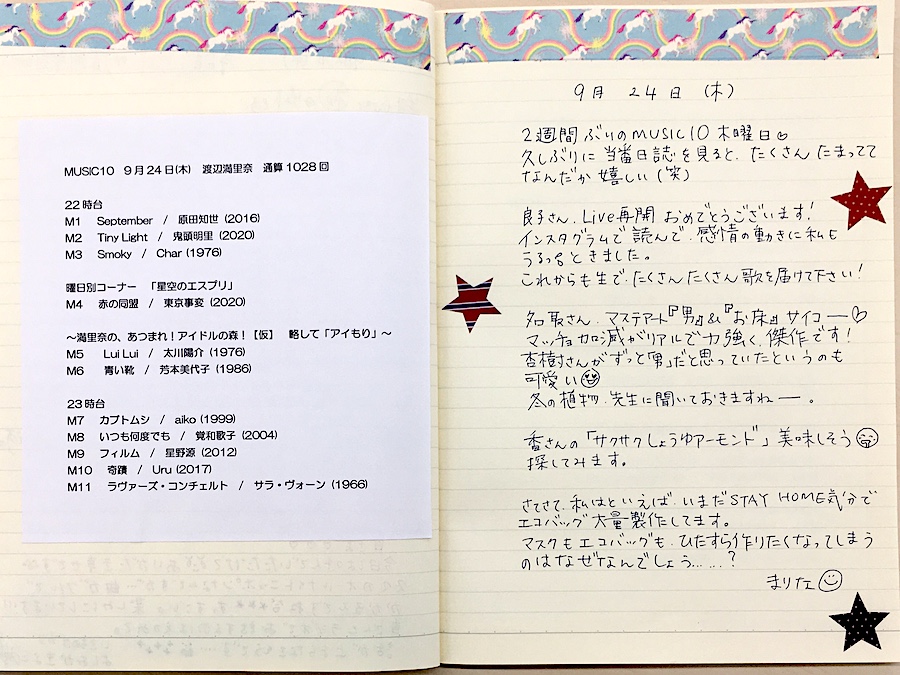 MUSIC10 9月24日(木) 渡辺満里奈 通算1028回
22時台
M1 September / 原田知世 (2016)
M2 Tiny Light / 鬼頭明里 (2020)
M3 Smoky / Char (1976)
曜日別コーナー 「星空のエスプリ」
M4 赤の同盟 / 東京事変 (2020)
～満里奈の、あつまれ！アイドルの森！【仮】 略して「アイもり」～
M5 Lui Lui / 太川陽介 (1976)
M6 青い靴 / 芳本美代子 (1986)
23時台
M7 カブトムシ / aiko (1999)
M8 いつも何度でも / 覚和歌子 (2004)
M9 フィルム / 星野源 (2012)
M10 奇蹟 / Uru (2017)
M11 ラヴァーズ・コンチェルト / サラ・ヴォーン (1966)
9月 24日 (木)
2週間ぶりのMUSIC10 木曜日♡
久しぶりに当番日誌を見ると、たくさんたまってて
なんだか嬉しい(笑)
良子さん、Live再開おめでとうございます!
インスタグラムで読んで、感情の動きに私も
うるっときました。
これからも生で、たくさんたくさん歌を届けて下さい!
名取さん、マステアート『男』&『お床』サイコー♡
マッチョ加減がリアルで力強く、傑作です!
杏樹さんがずっと「男」だと思っていたというのも
可愛い
冬の植物、先生に聞いておきますねー。
香さんの「サクサクしょうゆアーモンド」美味しそう
探してみます。
さてさて、私はといえば、いまだSTAY HOME気分で
エコバッグ大量製作してます。
マスクもエコバッグも、ひたすら作りたくなってしまう
のはなぜなんでしょう……?
まりな